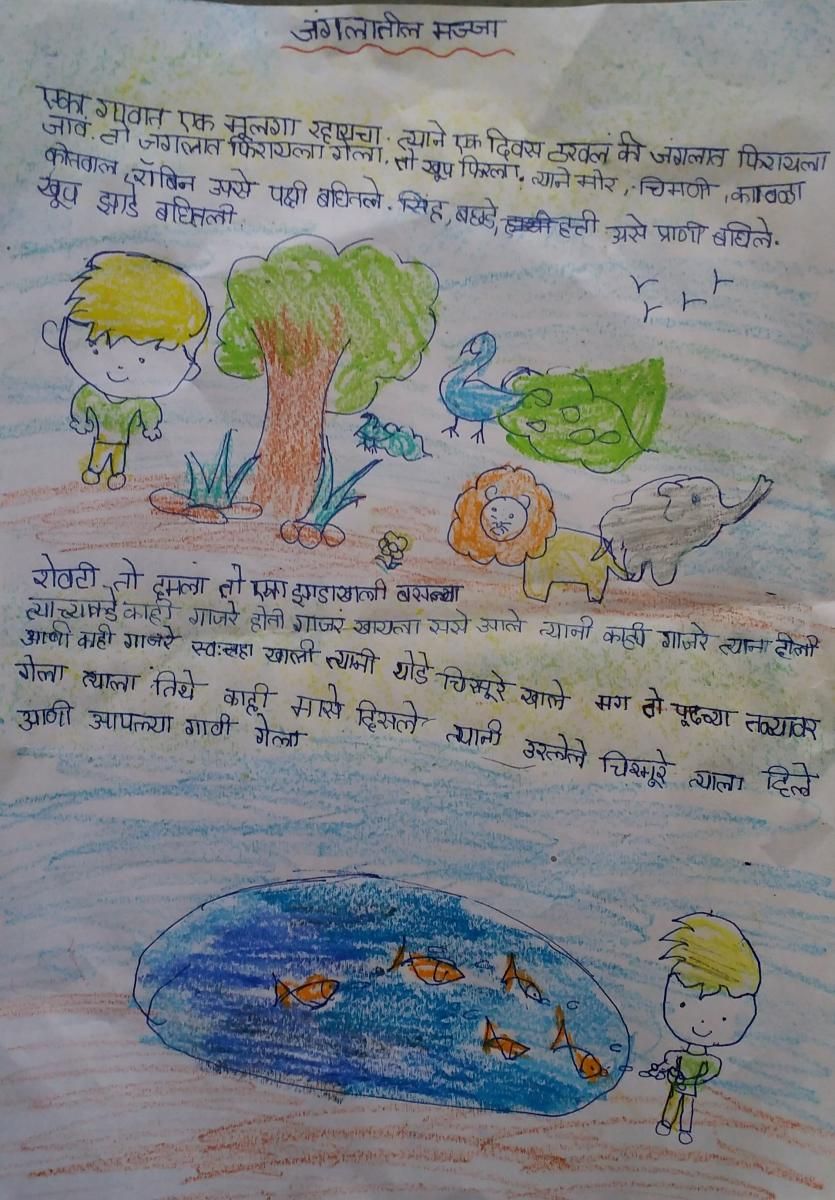 जंगलातील मज्जा
एका गावात एक मूलगा रहायचा. त्याने एक दिवस ठरवलं की जंगलात फिरायला
जावं. तो जंगलात फिरायला गेला. तो खूप फिरला. त्याने मोर, चिमणी, कावळा
कोतवाल, रॉबिन असे पक्षी बघितले. सिंह, हत्ती असे प्राणी बघिले.
खूप झाडे बघितली
शेवटी तो दमला तो एका झाडाखाली बसला
त्याच्याकडे काही गाजरे होती गाजरं खायला ससे आले त्यानी काही गाजरे त्याना दीली
आणी काही गाजरे स्वःतहा खाली त्यानी थोडे चिरमूरे खाले मग तो पूढच्या तळ्यावर
गेला त्याला तिथे काही मासे दिसले त्यानी उरलेले चिरमूरे त्याला दिले
आणी आपल्या गावी गेला